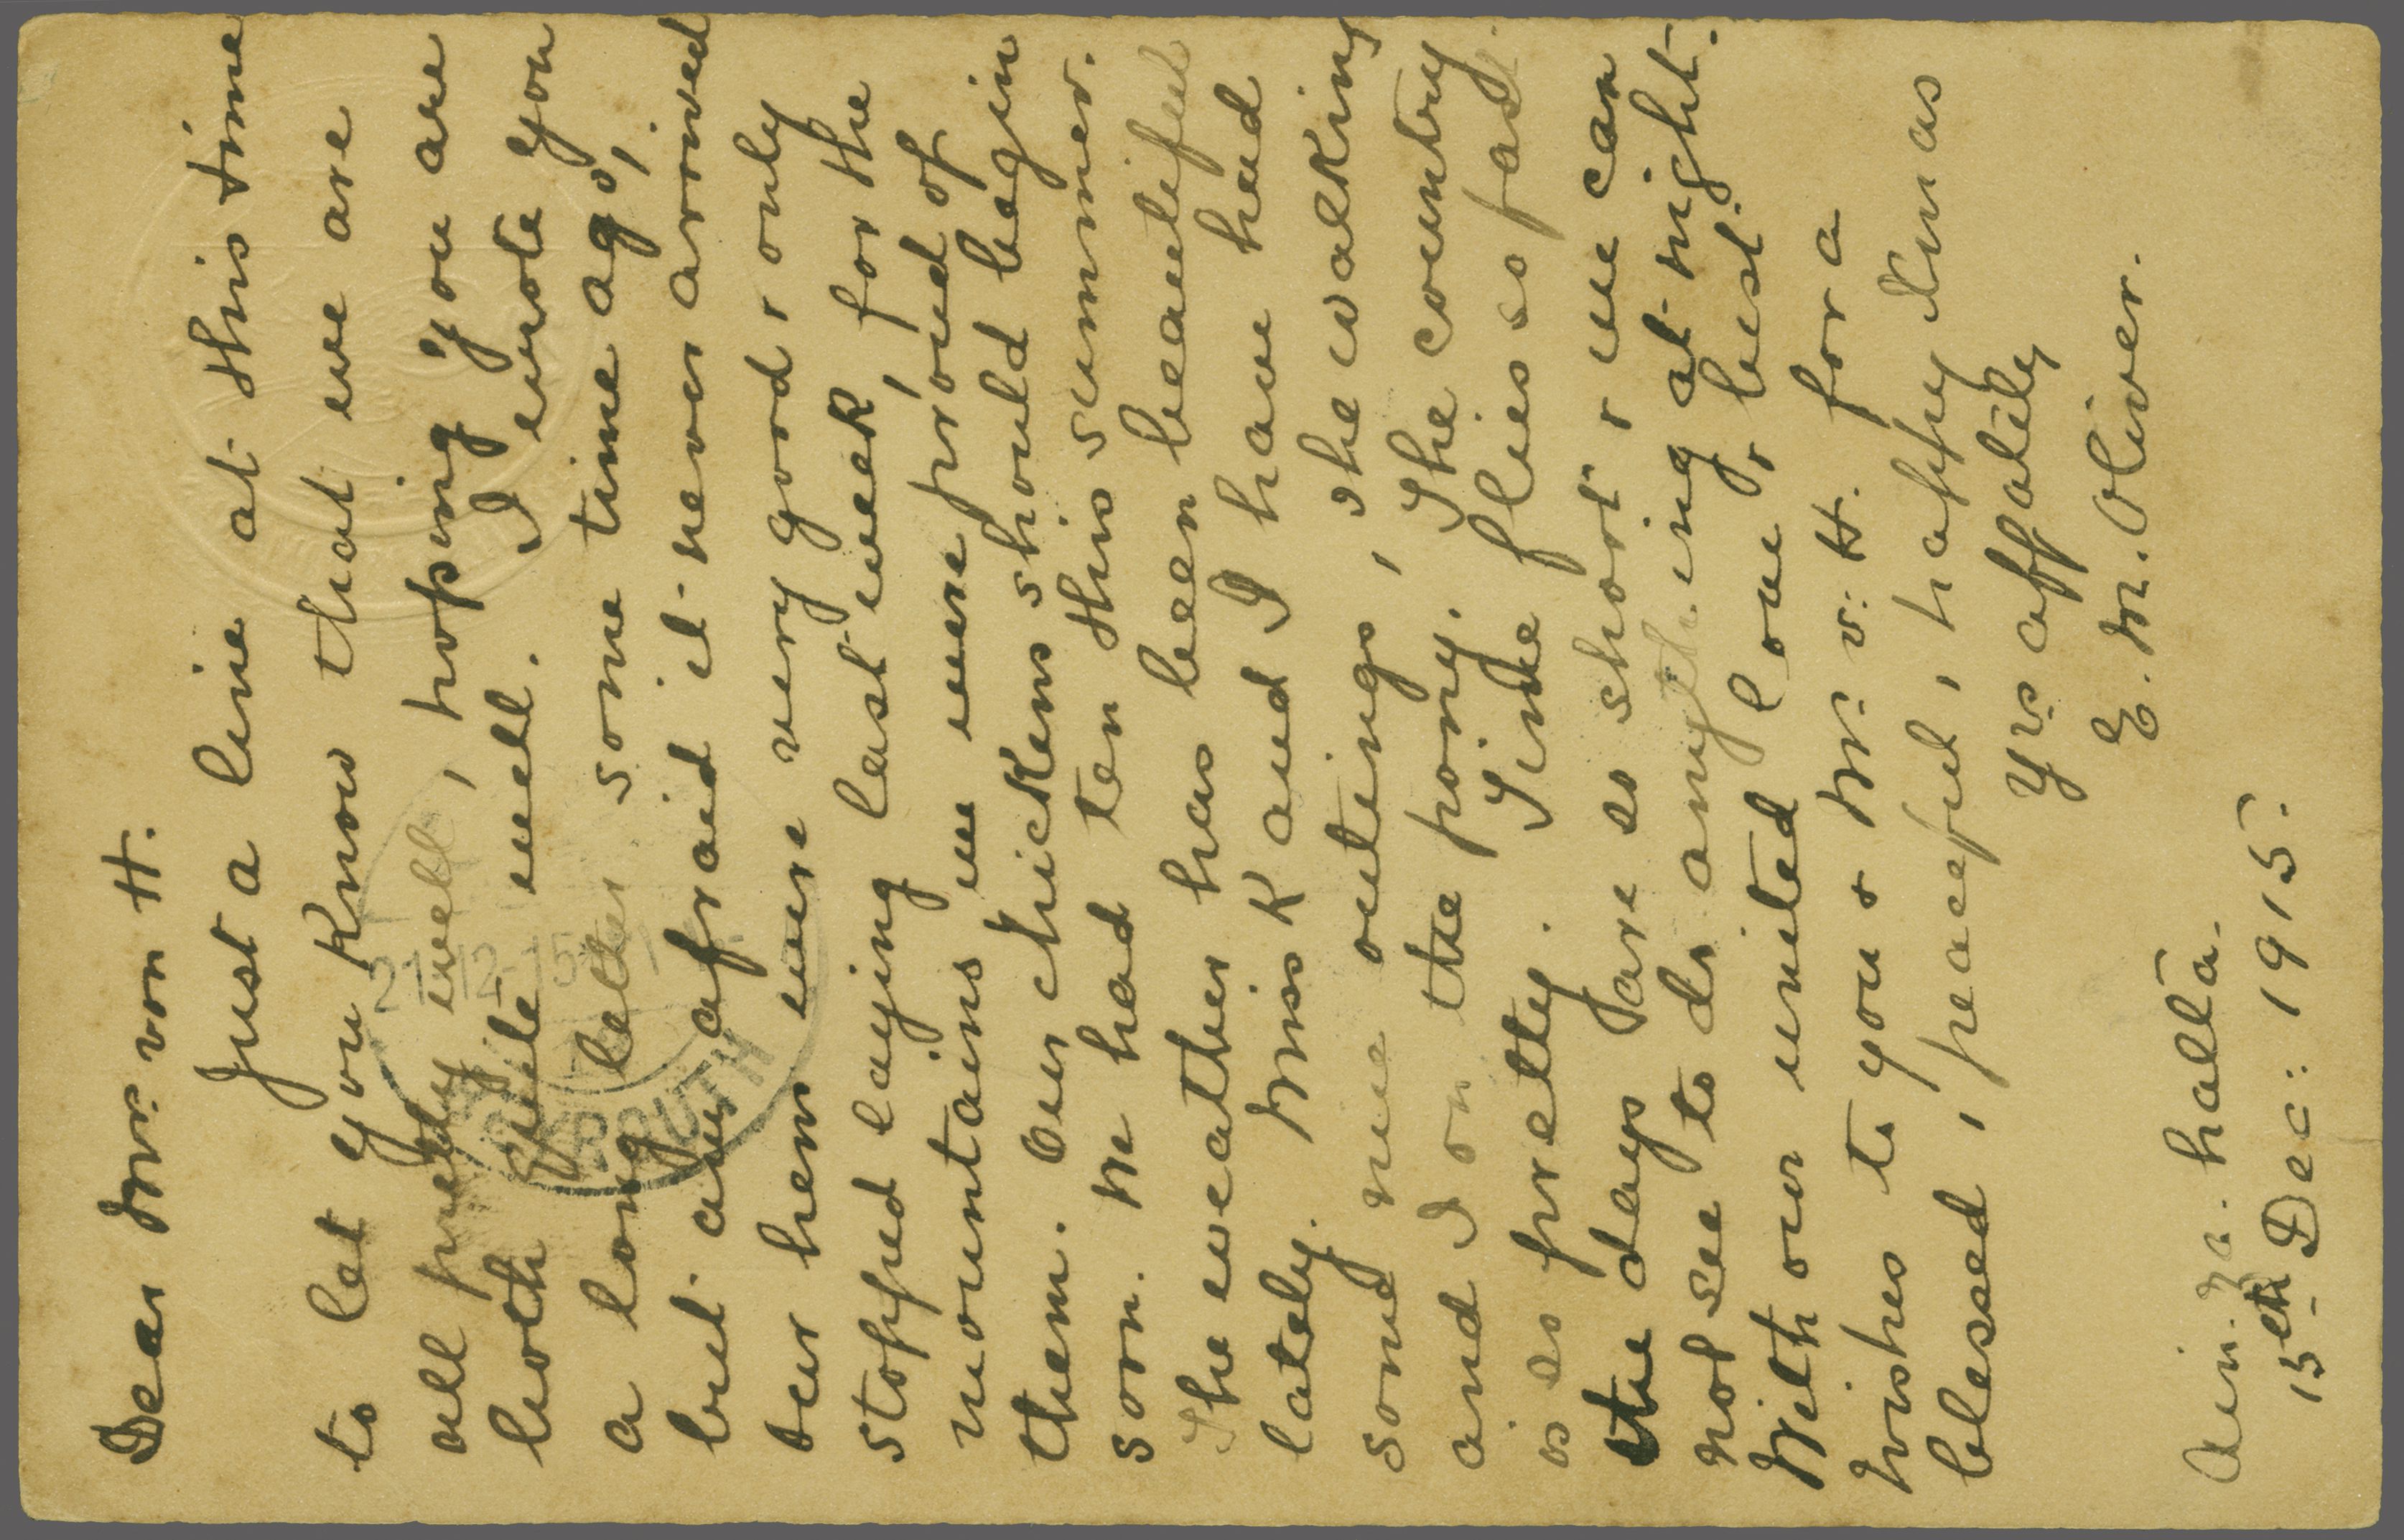 Dear Mrs: von H.
Just a line at this time
to let you know that we are
all pretty well, hoping you are
both quite well. I wrote you
a long letter some time ago,
but am afraid it never arrived
our hens were very good & only
stopped laying last week, for the
mountains we were proud of
them. Our chickens should begin
soon. We had ten this summer.
The weather has been beautiful
lately. Miss K and I have had
some nice outings, she walking
and I on the pony. The country
is so pretty. Time flies so fast
the days are so short & we can
not see to do anything at night.
With our united love, & best
wishes to you & Mr. v: H. for a
blessed, peaceful, happy Xmas
Yrs affately
E. M. Oliver.
Ain. Za. halta.
15th Dec: 1915.
BEYROUTH